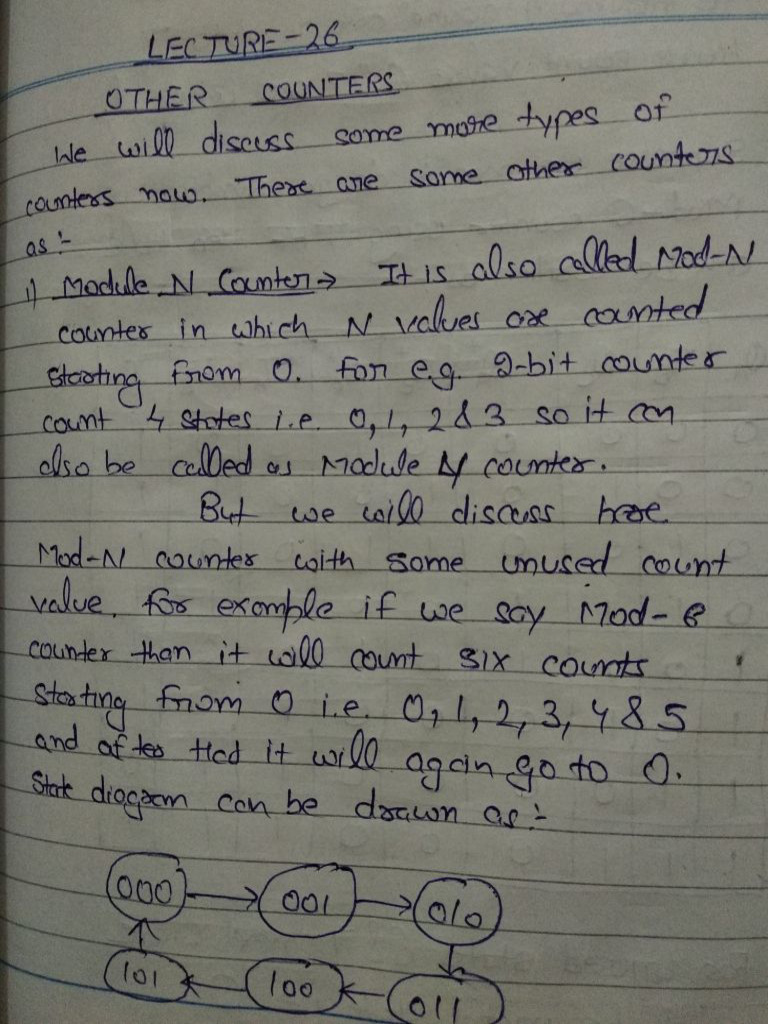 LECTURE-26
OTHER COUNTERS
We will discuss some more types of
counters now. There are some other counters
as :-
1) Module N Counter → It is also called Mod-N
counter in which N values are counted
starting from 0. For e.g. 2-bit counter
count 4 states i.e. 0, 1, 2 & 3 so it can
also be called as Module 4 counter.
But we will discuss here
Mod-N counter with some unused count
value. for example if we say Mod-6
counter than it will count six counts
starting from 0 i.e. 0, 1, 2, 3, 4 & 5
and after that it will again go to 0.
State diagram can be drawn as :-
000 → 001 → 010
101 ← 100 ← 011